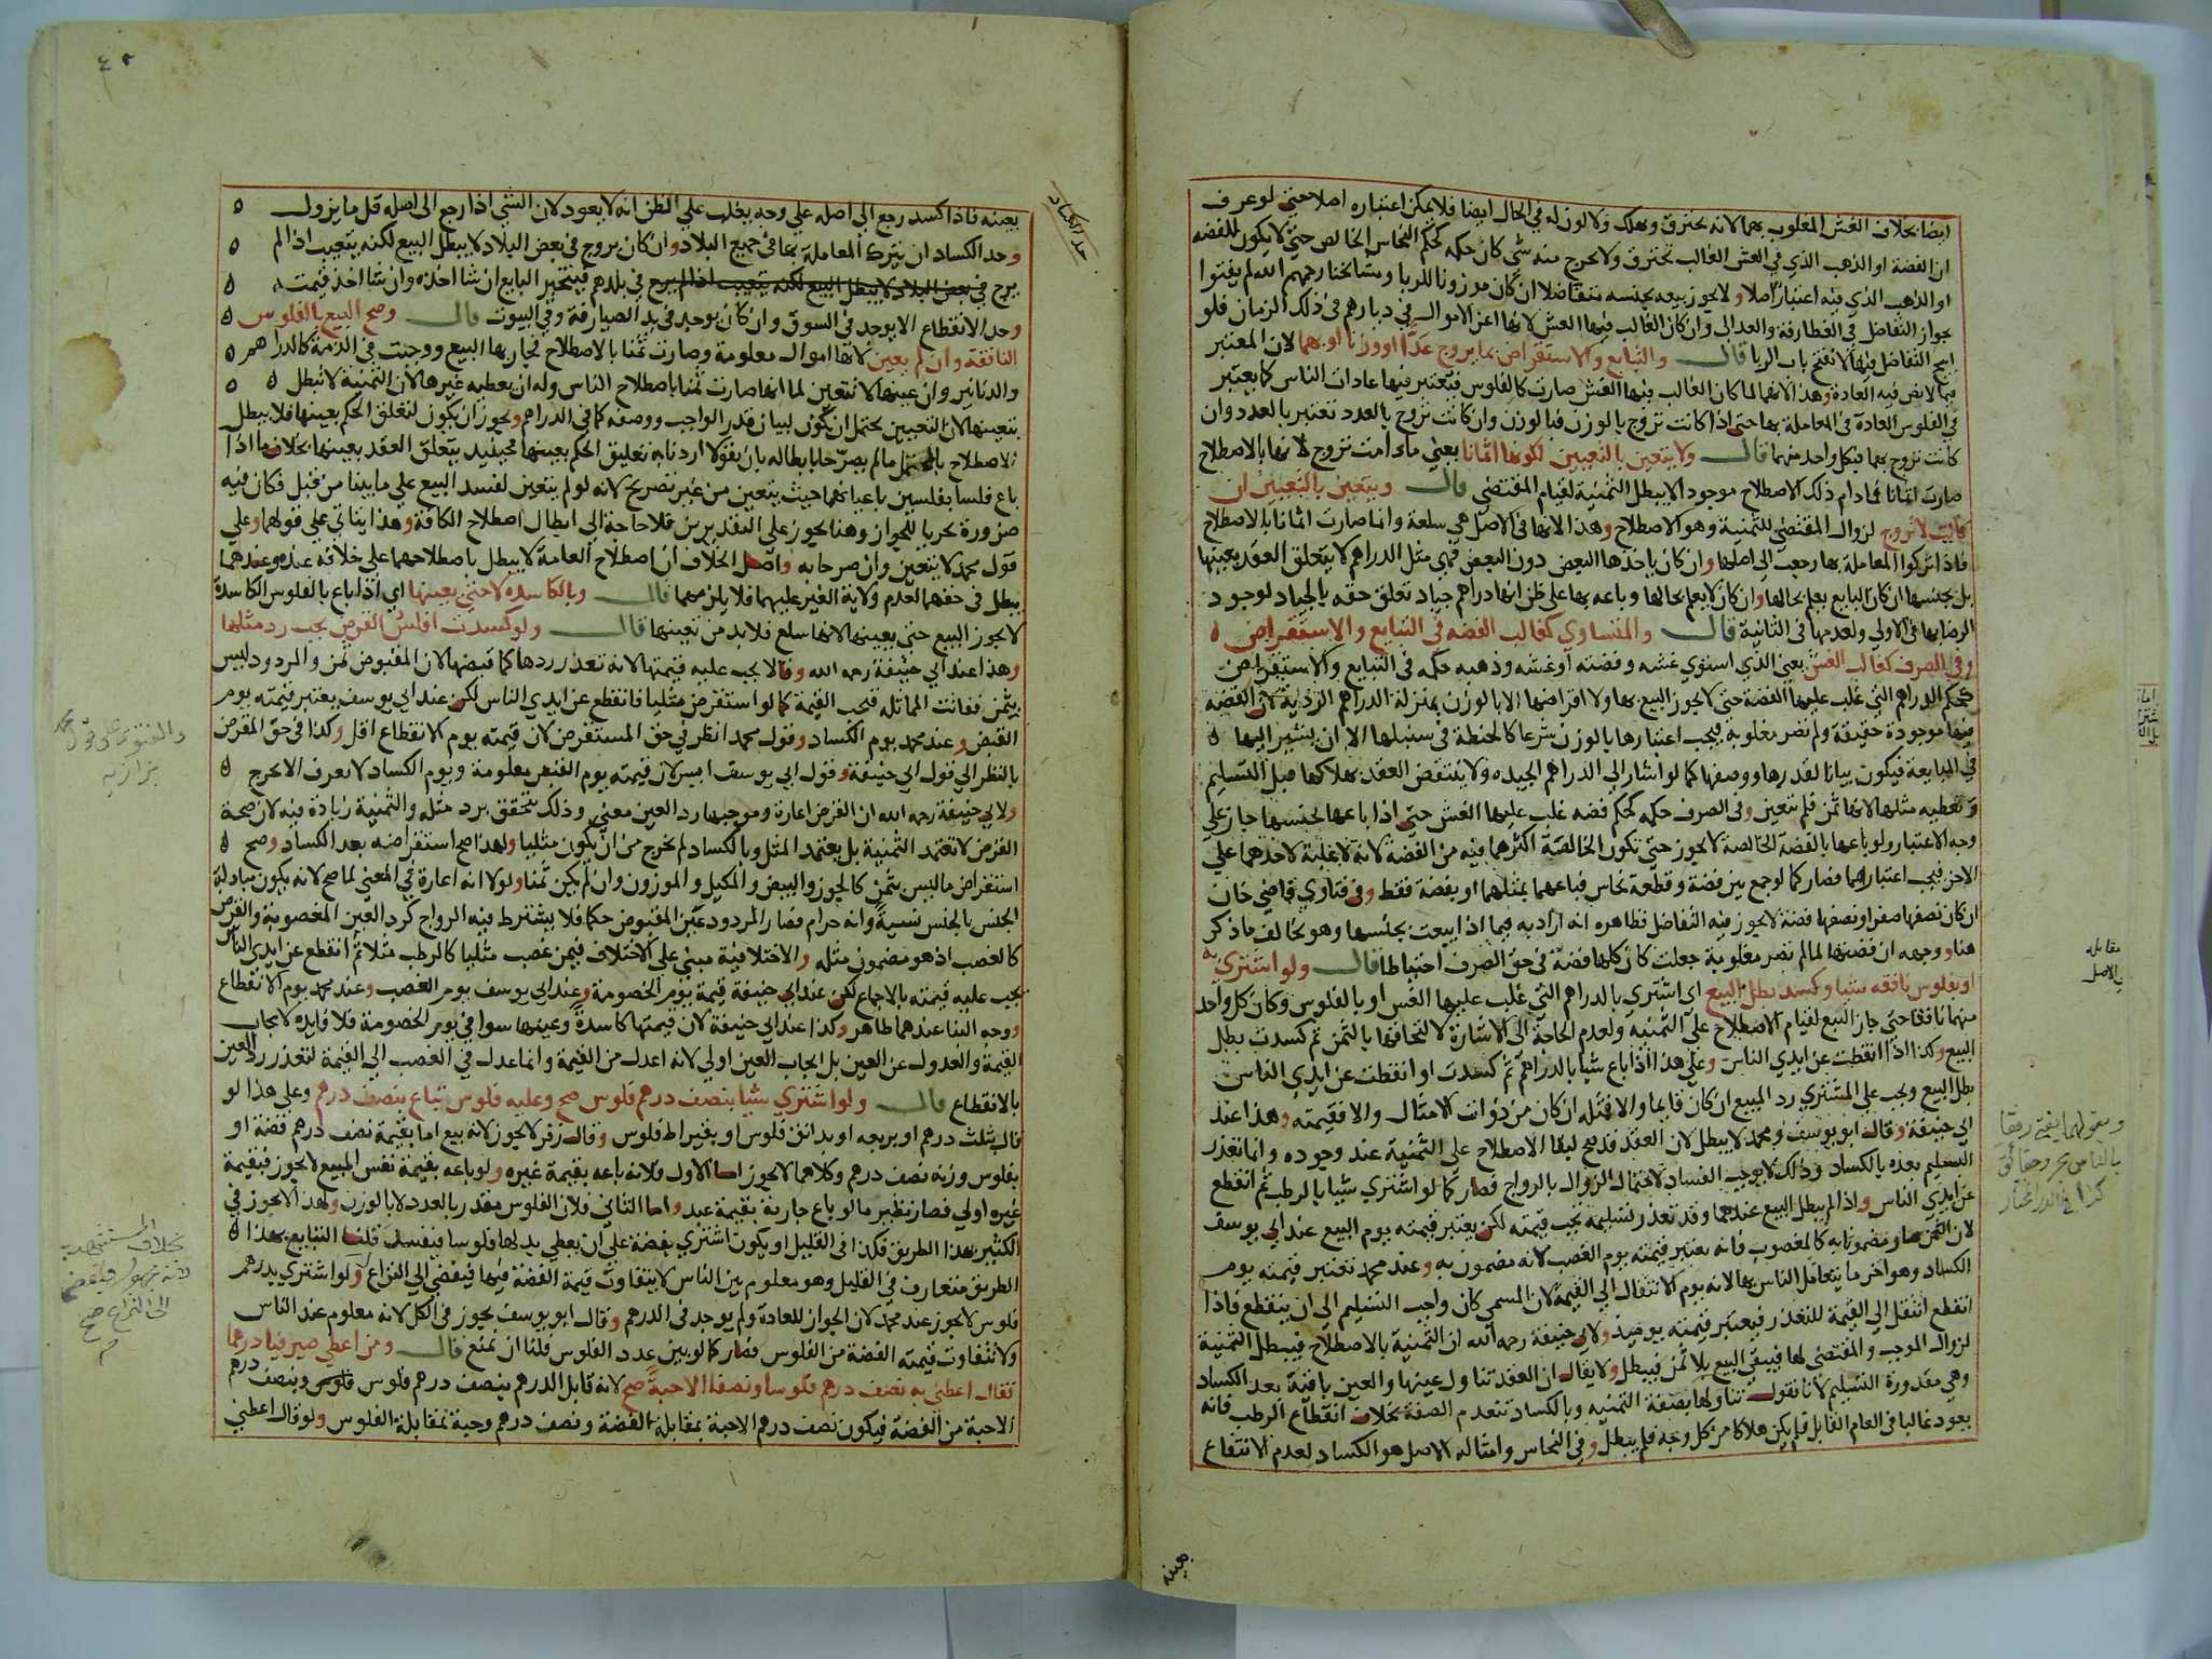 ايضا بخلاف الغش المغلوب بهما لانه يحترق ويهلك ولا لون له في الحال ايضا فلا يمكن اعتباره اصلا حتى لو عرف
ان الفضة او الذهب الذي في الغش الغالب يحترق ولا يخرج منه شي كان حكمه كحكم النحاس الخالص حتى لا يكون للفضه
او الذهب الذي فيه اعتبار اصلا ولا يجوز بيعه بجنسه متفاضلا ان كان موزونا للربا ومشائخنا رحمهم الله لم يفتوا
بجواز التفاضل في الغطارفة والعدالي وان كان الغالب فيها الغش لانها اعز الاموال في ديارهم في ذلك الزمان فلو
ابيح التفاضل فيها لانفتح باب الربا قال والتبايع والاستقراض بما يروج عددا او وزنا او بهما لان المعتبر
فيما لا نص فيه العادة وهذا لانهما لما كان الغالب فيها الغش صارت كالفلوس فتعتبر فيها عادات الناس كما يعتبر
في الفلوس العادة في المعاملة بها حتى اذا كانت تروج بالوزن فبالوزن وان كانت تروج بالعدد تعتبر بالعدد وان
كانت تروج بهما فبكل واحد منهما قال ولا يتعين بالتعيين لكونها اثمانا يعني ما دامت تروج لانها بالاصطلاح
صارت اثمانا فما دام ذلك الاصطلاح موجود الا يبطل الثمنية لقيام المقتضي قال ويتعين بالتعيين ان
كانت لا تروج لزوال المقتضي للثمنية وهو الاصطلاح وهذا لانها في الاصل هي سلعة وانما صارت اثمانا بالاصطلاح
فاذا تركوا المعاملة بها رجعت الى اصلها وان كان ياخذها البعض دون البعض فهي مثل الدراهم لا يتعلق العقد بعينها
بل بجنسها ان كان البايع يعلم بحالها وان كان لا يعلم بحالها وباعه بها على ظن انها دراهم جياد تعلق حقه بالجياد لوجود
الرضا بها في الاولى ولعدمها في الثانية قال والمتساوي كغالب الفضه في التبايع والاستقراض
وفي الصرف كغالب الغش يعني الذي استوي غشه وفضته او غشه وذهبه حكمه في التبايع والاستقراض
كحكم الدراهم التي غلب عليها الفضة حتى لا يجوز البيع بها ولا اقراضها الا بالوزن بمنزلة الدراهم الردية لان الفضة
فيها موجودة حقيقة ولم تصر مغلوبة فيجب اعتبارها بالوزن شرعا كالحنطة في سنبلها الا ان يشير اليها
في المبايعة فيكون بيانا لقدرها ووصفها كما لو اشار الى الدراهم الجيده ولا ينتقض العقد بهلاكها قبل التسليم
وتعطيه مثلها لانها ثمن فلم تتعين وفي الصرف حكمه كحكم فضه غلب عليها الغش حتى اذا باعها بجنسها جاز على
وجه الاعتبار ولو باعها بالفضة الخالصة لا يجوز حتى تكون الخالصة اكثر مما فيه من الفضة لانه لا غلبة لاحدهما على
الاخر فيجب اعتبارهما فصار كما لو جمع بين فضة وقطعة نحاس فباعهما بمثلهما او بفضة فقط وفي فتاوي قاضي خان
ان كان نصفها صفرا ونصفها فضة لا يجوز فيه التفاضل فظاهره انه اراد به فيما اذا بيعت بجنسها وهو يخالف ما ذكر
هنا ووجهه ان فضتها لما لم تصر مغلوبة جعلت كان كلها فضة في حق الصرف احتياطا قال ولو اشتري به
او بفلوس نافقه شيا وكسد بطل البيع اي اشتري بالدراهم التي غلب عليها الغش او بالفلوس وكان كل واحد
منهما نافقا حتى جاز البيع لقيام الاصطلاح على الثمنيه ولعدم الحاجة الى الاشارة لالتحاقها بالثمن ثم كسدت بطل
البيع وكذا اذا انقطعت عن ايدي الناس وعلى هذا اذا باع شيا بالدراهم ثم كسدت او انقطعت عن ايدي الناس
بطل البيع ويجب على المشتري رد المبيع ان كان قايما والا فمثله ان كان من ذوات الامثال والا فقيمته وهذا عند
ابي حنيفة وقال ابو يوسف ومحمد لا يبطل لان العقد قد صح لبقا الاصطلاح على الثمنية عند وجوده وانما تعذر
التسليم بعده بالكساد وذلك لا يوجب الفساد لاحتمال الزوال بالرواج فصار كما لو اشتري شيا بالرطب ثم انقطع
عن ايدي الناس واذا لم يبطل البيع عندهما وقد تعذر تسليمه تجب قيمته لكن يعتبر قيمته يوم البيع عند ابي يوسف
لان الثمن صار مضمونا به كالمغصوب فانه يعتبر قيمته يوم الغصب لانه مضمون به وعند محمد تعتبر قيمته يوم
الكساد وهو اخر ما يتعامل الناس بها لانه يوم الانتقال الى القيمة لان المسمي كان واجب التسليم الى ان ينقطع فاذا
انقطع انتقل الى القيمة للتعذر فيعتبر قيمته يوميذ ولابي حنيفة رحمه الله ان الثمنية بالاصطلاح فيبطل الثمنية
لزوال الموجب والمقتضي لها فيبقى البيع بلا ثمن فيبطل ولا يقال ان العقد تناول عينها والعين باقية بعد الكساد
وهي مقدورة التسليم لانا نقول تناولها بصفة الثمنيه وبالكساد تنعدم الصفة بخلاف انقطاع الرطب فانه
يعود غالبا في العام القابل فلم يكن هلاكا من كل وجه فلم يبطل وفي النحاس وامثاله الاصل هو الكساد لعدم الانتفاع
بعينه
مقابله
بالاصل
بعينه فاذا كسد رجع الى اصله على وجه يغلب على الظن انه لا يعود لان الشي اذا رجع الى اصله قل ما يزول
حد الكساد
وحد الكساد ان يترك المعاملة بها في جميع البلاد وان كان يروج في بعض البلاد لا يبطل البيع لكنه يتعيب اذا لم
يرج في بعض البلاد لا يبطل البيع لكنه يتعيب اذا لم يرج في بلدهم فيتخير البايع ان شا اخذه وان شا اخذ قيمته
وحد الانقطاع الا يوجد في السوق وان كان يوجد في يد الصيارفة وفي البيوت قال وصح البيع بالفلوس
النافقة وان لم يعين لانها اموال معلومة وصارت ثمنا بالاصطلاح فجاز بها البيع ووجبت في الذمة كالدراهم
والدنانير وان عينها لا تتعين لما انها صارت ثمنا باصطلاح الناس وله ان يعطيه غيرها لان الثمنية لا تبطل
بتعيينها لان التعيين يحتمل ان يكون لبيان قدر الواجب ووصفه كما في الدراهم ويجوز ان يكون لتعلق الحكم بعينها فلا يبطل
الاصطلاح بالمحتمل ما لم يصرحا بابطاله بان يقولا اردنا به تعليق الحكم بعينها فحينيذ يتعلق العقد بعينها بخلاف ما اذا
باع فلسا بفلسين باعيانهما حيث يتعين من غير تصريح لانه لو لم يتعين لفسد البيع على ما بينا من قبل فكان فيه
ضرورة تحريا للجواز وهنا يجوز على التقديرين فلا حاجة الى ابطال اصطلاح الكافة وهذا يتاتي على قولهما وعلى
قول محمد لا يتعين وان صرحا به واصل الخلاف ان اصطلاح العامة لا يبطل باصطلاحهما على خلافه عنده وعندهما
يبطل في حقهما لعدم ولاية الغير عليهما فلا يلزمهما قال وبالكاسدة لا حتى يعينها اي اذا باع بالفلوس الكاسدة
لا يجوز البيع حتى يعينها لانها سلع فلا بد من تعيينها قال ولو كسدت افلس القرض يجب رد مثلها
وهذا عند ابي حنيفة رحمه الله وقالا يجب عليه قيمتها لانه تعذر ردها كما قبضها لان المقبوض ثمن والمردود ليس
بثمن ففاتت المماثلة فتجب القيمة كما لو استقرض مثليا فانقطع عن ايدي الناس لكن عند ابي يوسف يعتبر قيمته يوم
القبض وعند محمد يوم الكساد وقول محمد انظر في حق المستقرض لان قيمته يوم الانقطاع اقل وكذا في حق المقرض
بالنظر الى قول ابي حنيفة وقول ابي يوسف ايسر لان قيمته يوم القبض معلومة ويوم الكساد لا يعرف الا بحرج
ولابي حنيفة رحمه الله ان القرض اعارة وموجبها رد العين معني وذلك يتحقق برد مثله والثمنية زيادة فيه لان صحة
القرض لا تعتمد الثمنية بل يعتمد المثل وبالكساد لم يخرج من ان يكون مثليا ولهذا صح استقراضه بعد الكساد وصح
استقراض ما ليس بثمن كالجوز والبيض والمكيل والموزون وان لم يكن ثمنا ولولا انه اعارة في المعني لما صح لانه يكون مبادلة
الجنس بالجنس نسيئة وانه حرام فصار المردود عين المقبوض حكما فلا يشترط فيه الرواج كرد العين المغصوبة والقرض
كالغصب اذ هو مضمون مثله والاختلافية مبني على الاختلاف فيمن غصب مثليا كالرطب مثلا ثم انقطع عن ايدي الناس
يجب عليه قيمته بالاجماع لكن عند ابي حنيفة قيمة يوم الخصومة وعند ابي يوسف يوم الغصب وعند محمد يوم الانقطاع
ووجه البنا عندهما ظاهر وكذا عند ابي حنيفة لان قيمتها كاسدة وعينها سوا في يوم الخصومة فلا فايدة لايجاب
القيمة والعدول عن العين بل ايجاب العين اولي لانه اعدل من القيمة وانما عدل في الغصب الى القيمة لتعذر رد العين
بالانقطاع قال ولو اشتري شيا بنصف درهم فلوس صح وعليه فلوس تباع بنصف درهم وعلى هذا لو
قال بثلث درهم او بربعه او بدانق فلوس او بقيراط فلوس وقال زفر لا يجوز لانه بيع اما بقيمة نصف درهم فضة او
بفلوس وزنه نصف درهم وكلاهما لا يجوز اما الاول فلانه باعه بقيمة غيره ولو باعه بقيمة نفس المبيع لا يجوز فبقيمة
غيره اولي فصار نظير ما لو باع جارية بقيمة عبد واما الثاني فلان الفلوس مقدر بالعدد لا بالوزن ولهذا لا يجوز في
الكثير بهذا الطريق فكذا في القليل او يكون اشتري بفضة على ان يعطي بدلها فلوسا فيفسد قلنا التبايع بهذا
الطريق متعارف في القليل وهو معلوم بين الناس لا يتفاوت قيمة الفضة فيها فيفضي الى النزاع ولو اشتري بدرهم
فلوس لا يجوز عند محمد لان الجواز للعادة ولم يوجد في الدرهم وقال ابو يوسف يجوز في الكل لانه معلوم عند الناس
ولا تتفاوت قيمته الفضة من الفلوس فصار كما لو بين عدد الفلوس قلنا ان تمنع قال ومن اعطي صيرفيا درهما
فقال اعطني به نصف درهم فلوسا ونصفا الا حبة صح لانه قابل الدرهم بنصف درهم فلوس وبنصف درهم
الا حبة من الفضة فيكون نصف درهم الا حبة بمقابلة الفضة ونصف درهم وحبة بمقابلة الفلوس ولو قال اعطني
والفتوى على قول محمد
بزازيه